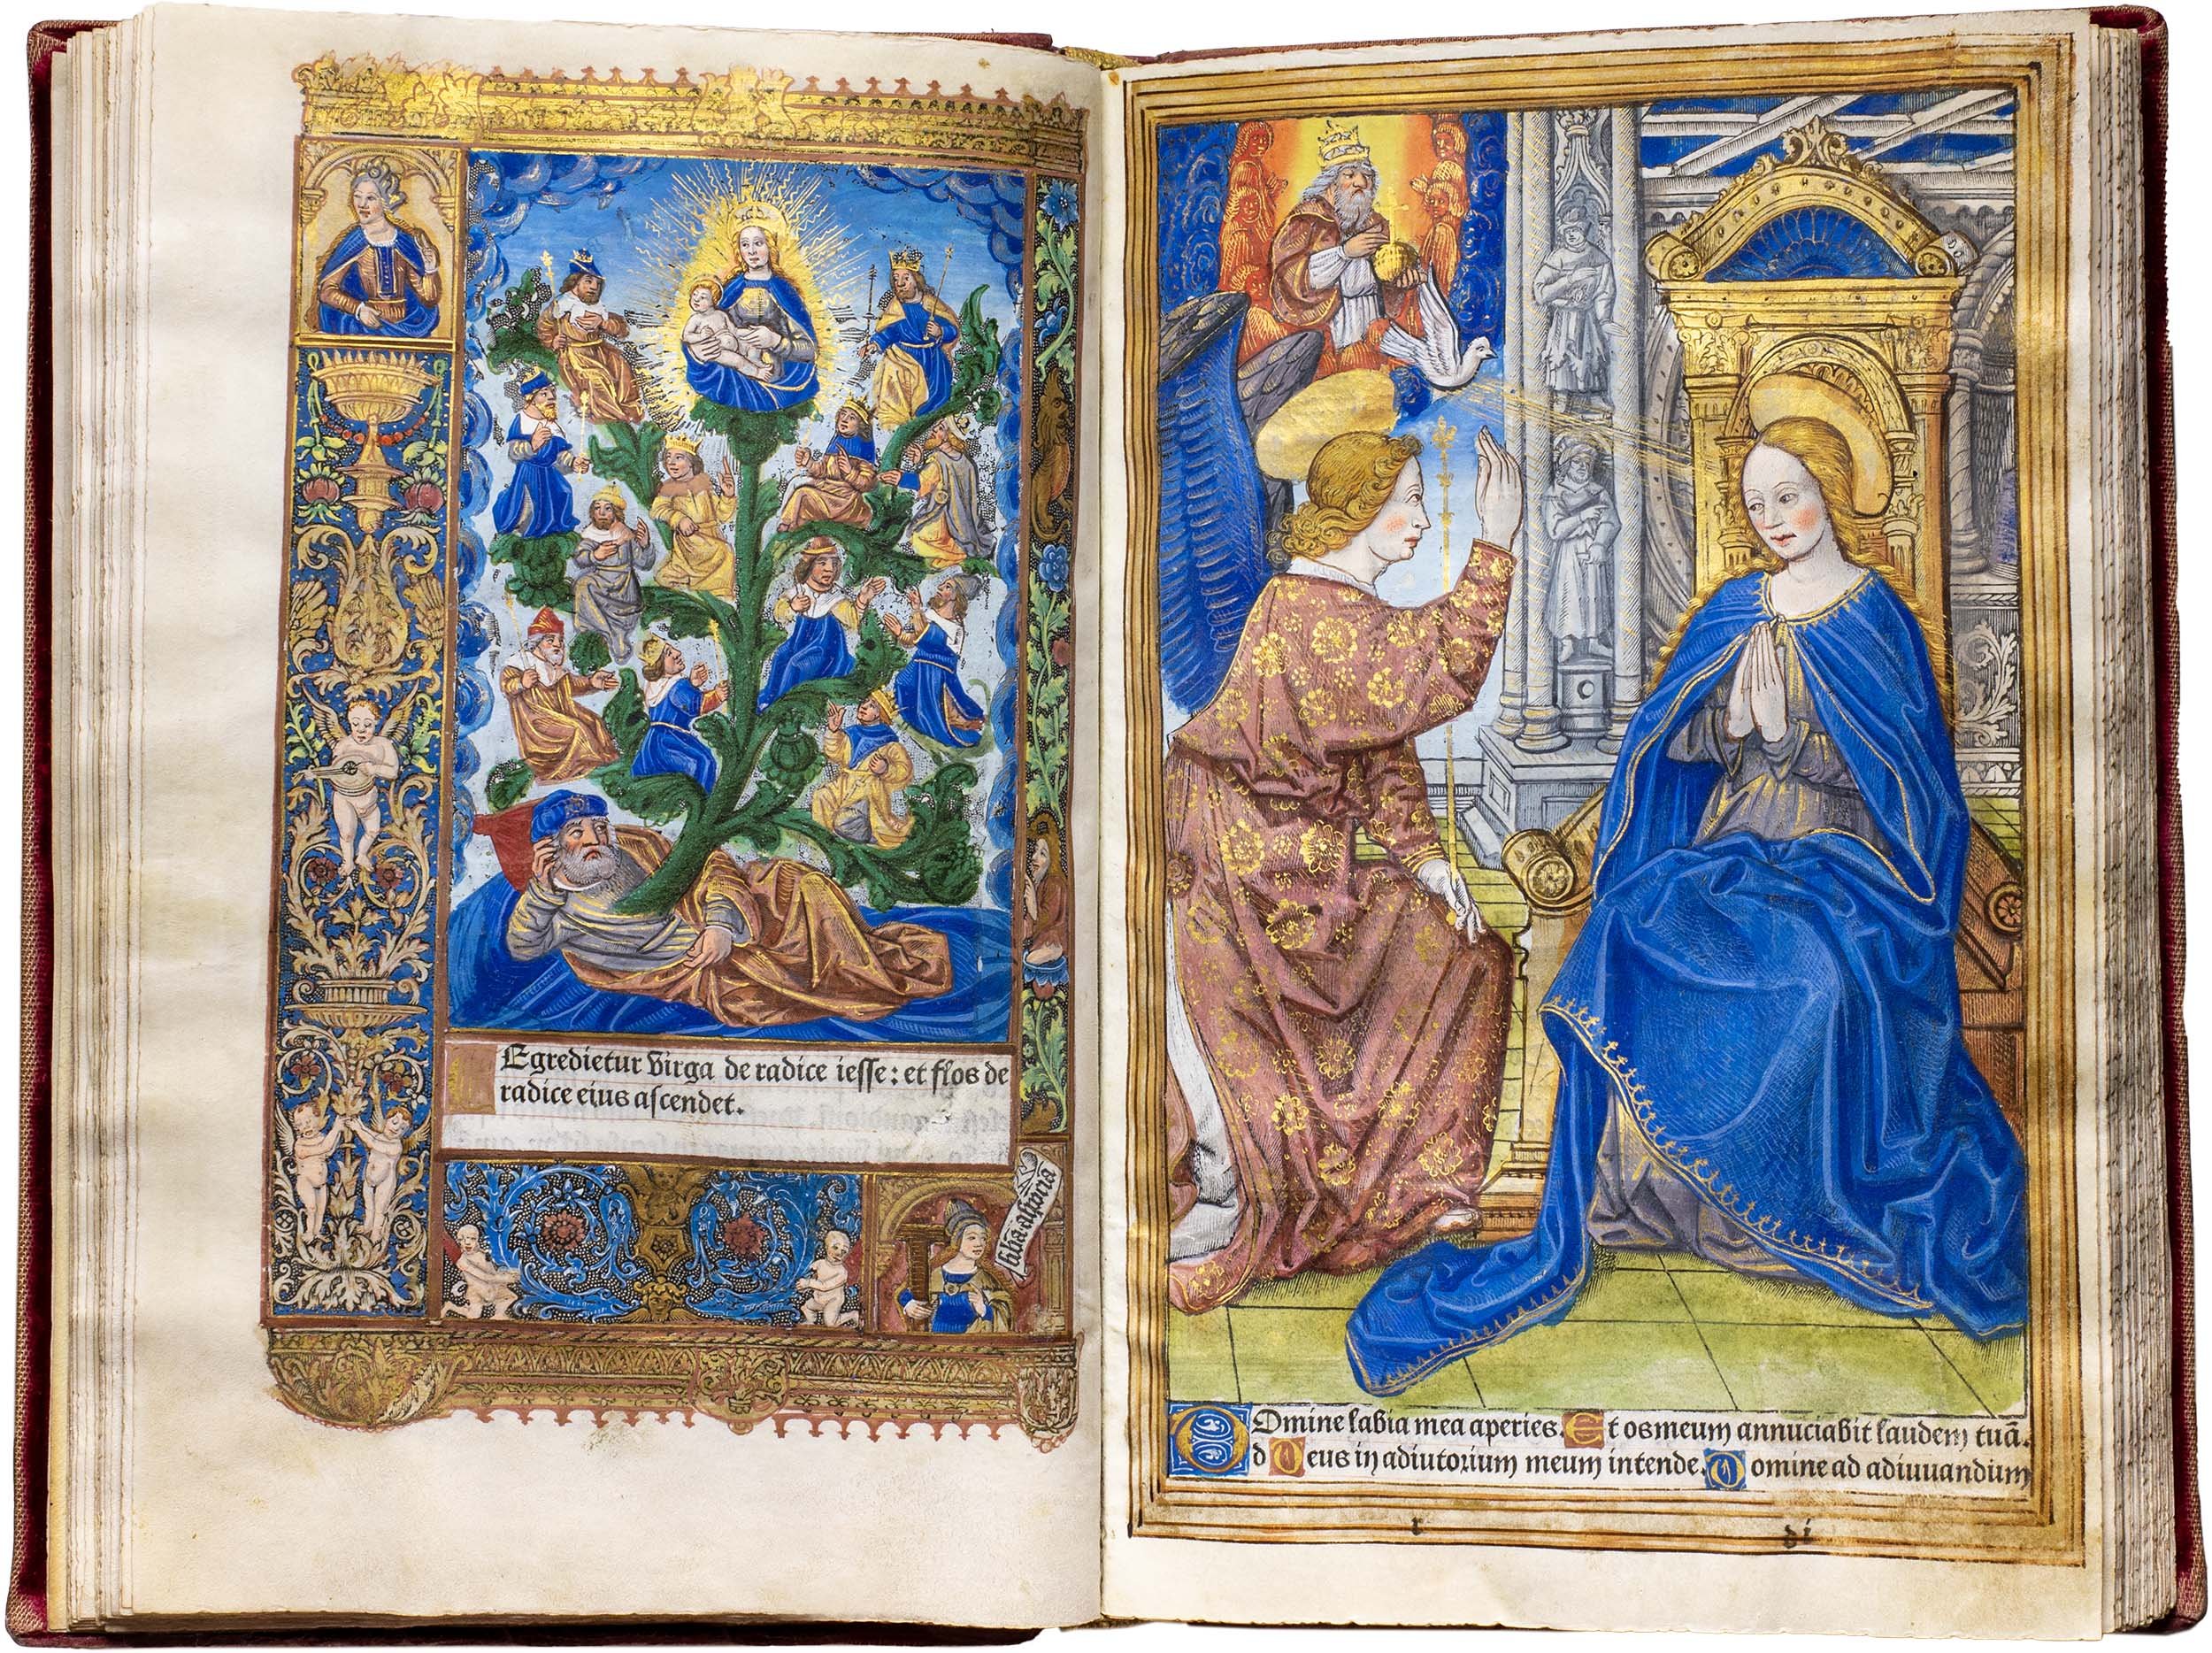 Egredietur Virga de radice iesse: et flos de
radice eius ascendet.
Domine labia mea aperies. Et os meum annuciabit laudem tuā.
d Deus in adiutorium meum intende. Domine ad adiuuandum
r
di